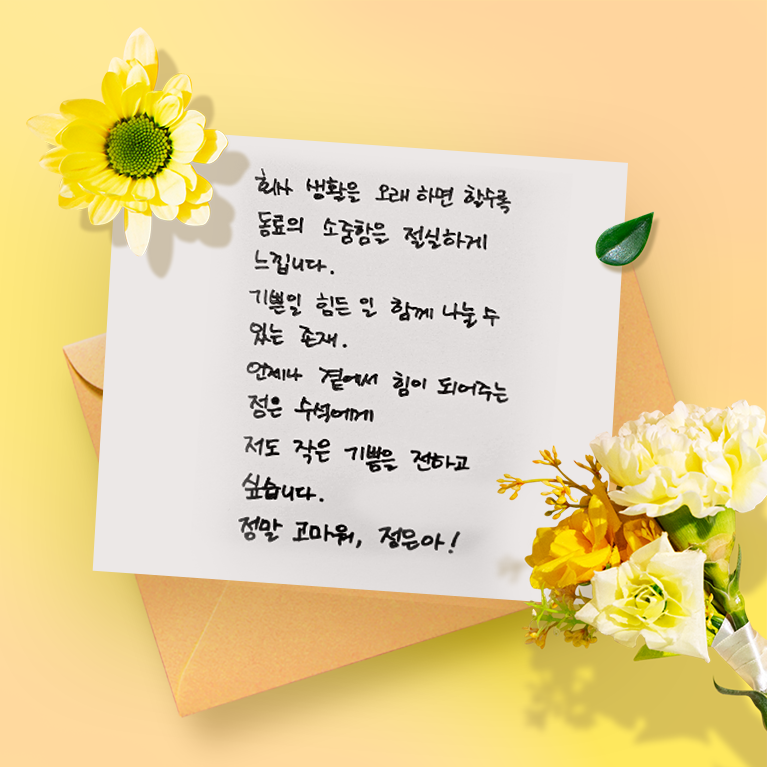 회사 생활을 오래 하면 할수록
동료의 소중함을 절실하게
느낍니다.
기쁜일 힘든 일 함께 나눌 수
있는 존재.
언제나 곁에서 힘이 되어주는
정은 수석에게
저도 작은 기쁨을 전하고
싶습니다.
정말 고마워, 정은아!